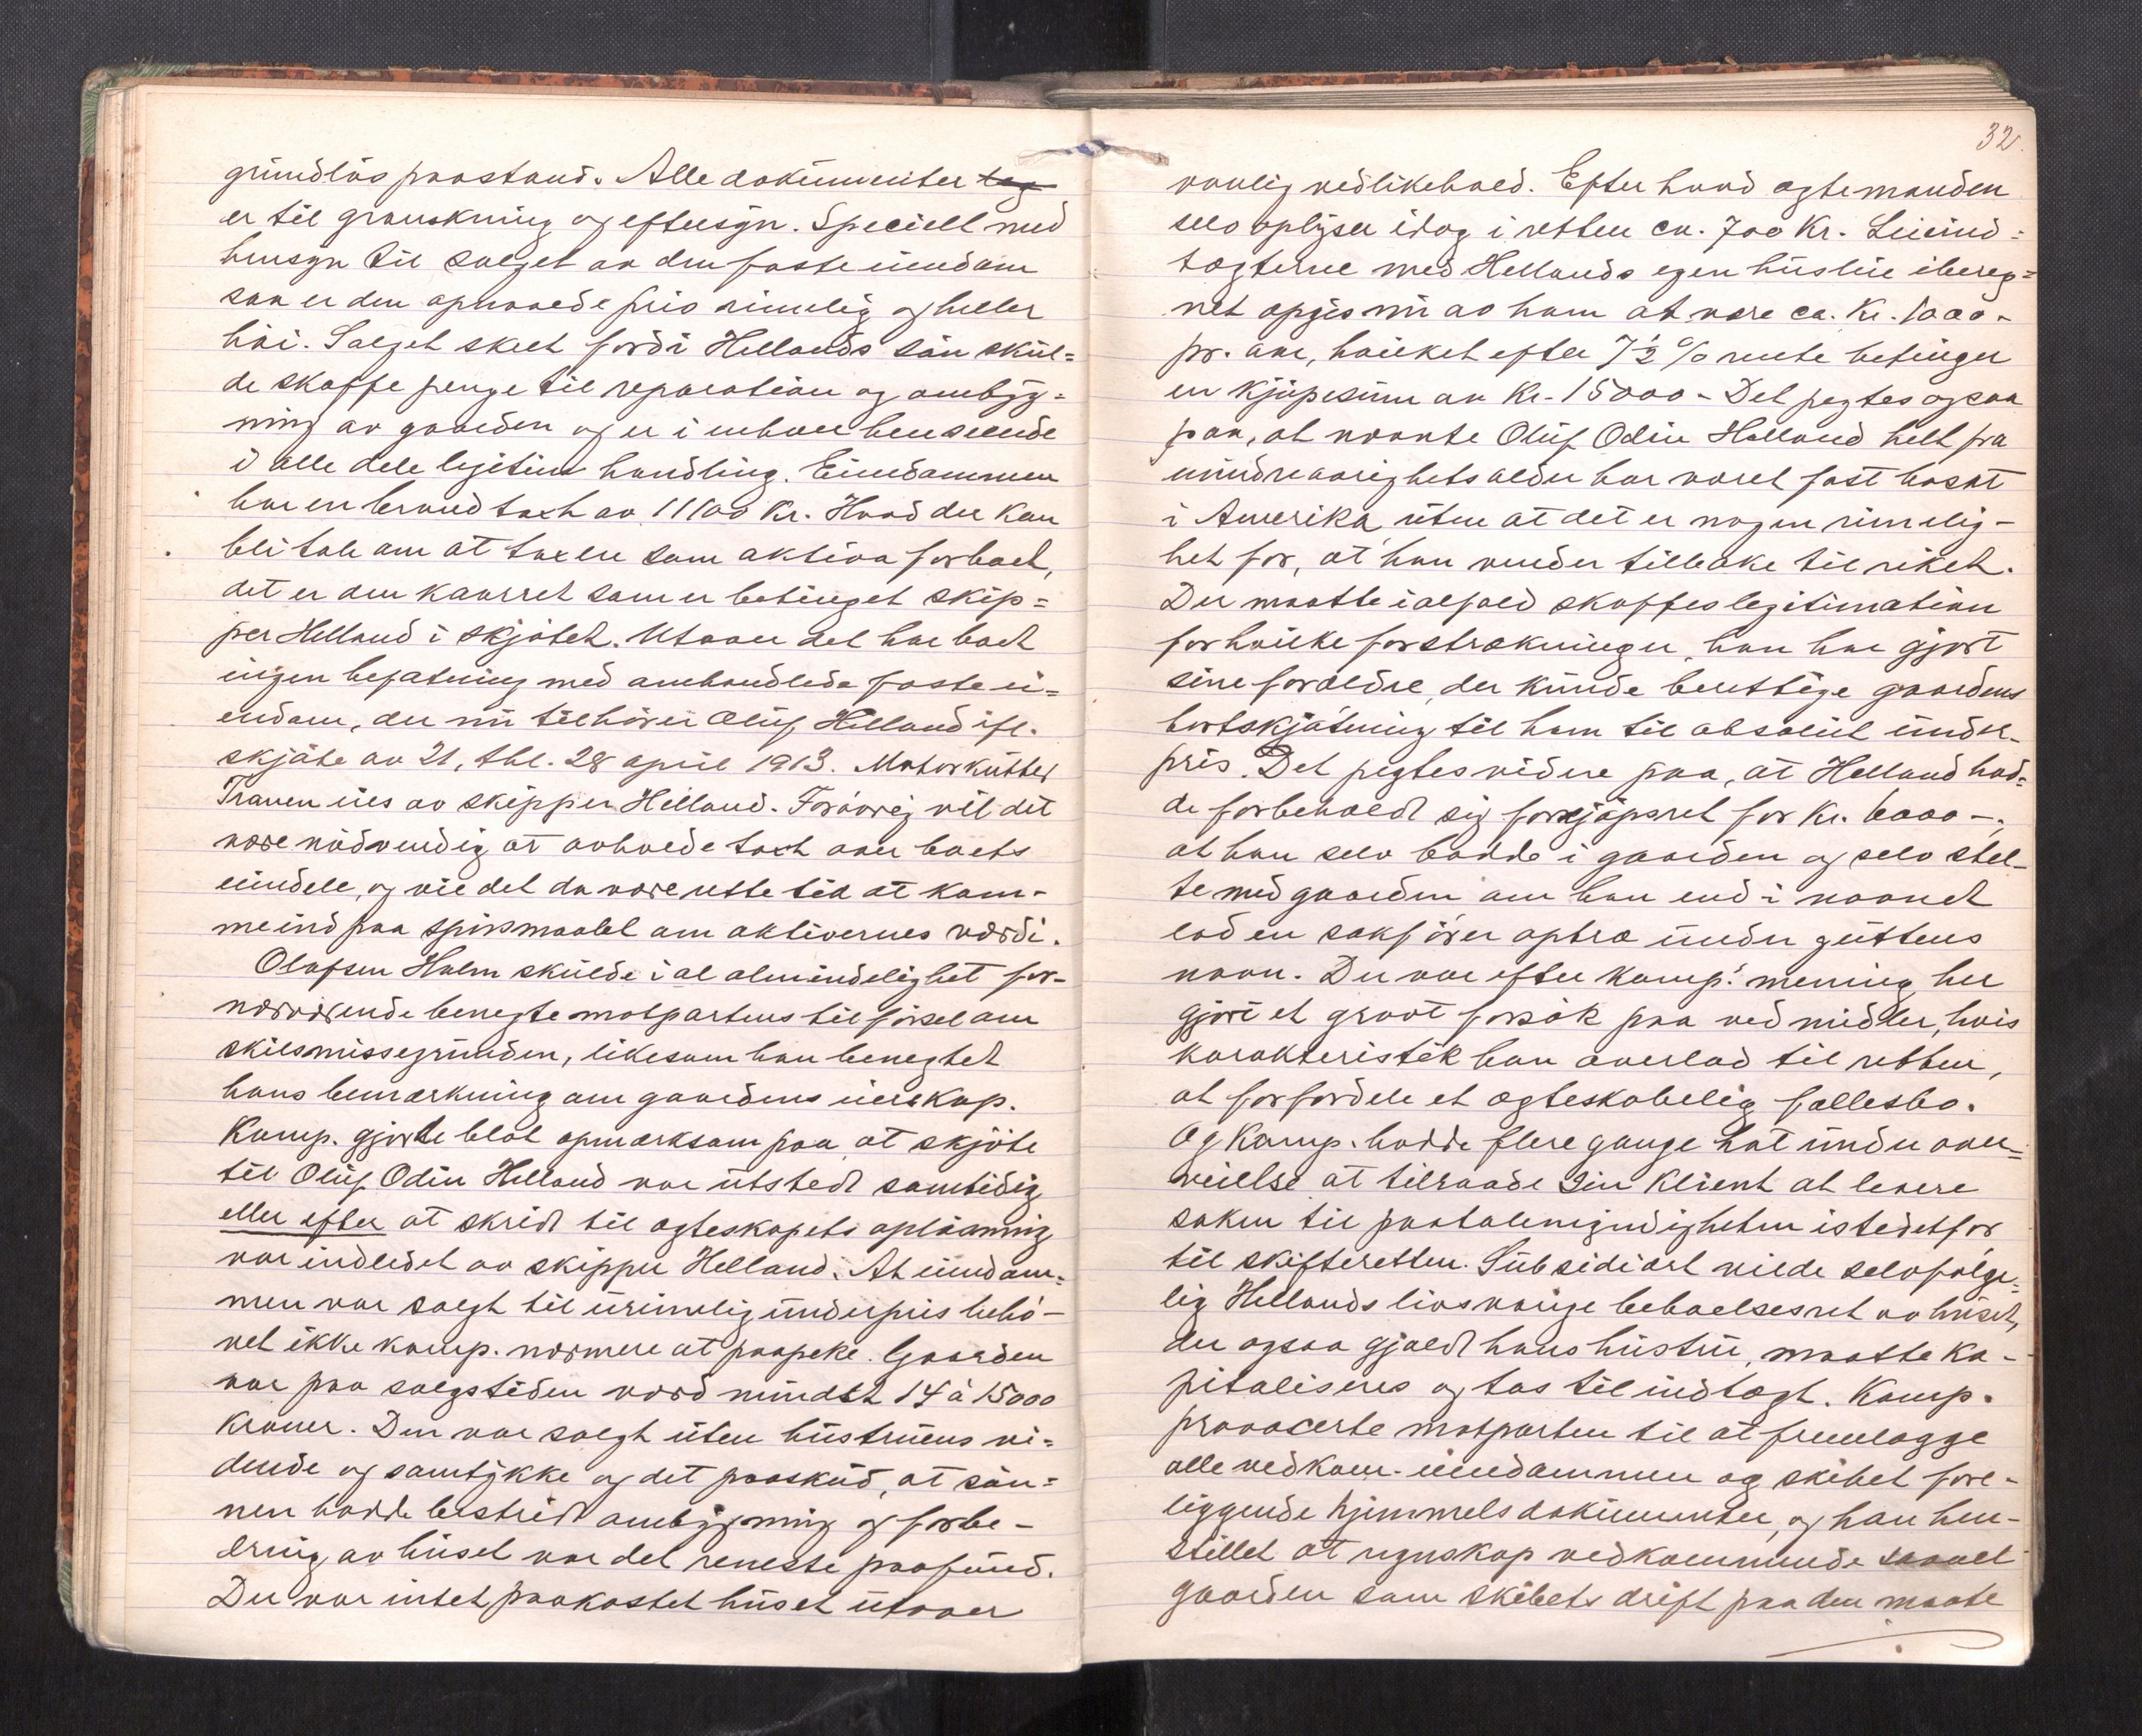 grundløs paastand. Alle dokumenter tag
er til granskning og eftersyn. Specielt med
hensyn til salget av den faste eiendom
saa er den opnaaede pris rimelig og heller
høi. Salget skeet fordi Hellands søn skul=
de skaffe penge til reparation og ombyg=
ning av gaarden og er i enhver henseende
i alle dele legitim handling. Eiendommen
har en brandtaxt av 11100 Kr. Hvad der kan
bli tale om at taxere som aktiva for boet,
det er den kaarret som er betinget skip=
per Helland i skjøtet. Utover det har boet
ingen befatning med omhandlede faste ei=
endom, der nu tilhører Oluf Helland ifl.
skjøte av 21, thl. 28 april 1913. Motorkutter
Tranen eies av skipper Helland. Forøvrig vil det
være nødvendig at avholde taxt over boets
eiendele, og vil det da være rette tid at kom-
me ind paa spørsmaalet om aktivernes værdi.
Olafsen Holm skulde i al almindelighet for-
nærværende benegte motpartens tilførsel om
skilsmissegrunden, likesom han benegtet
hans bemerkning om gaardens eierskap.
Komp. gjorde blot opmerksom paa at skjøte
til Oluf Odin Helland var utstedt samtidig
eller efter at skridt til ægteskapets opløsning
var indledet av skipper Helland. At eiendom=
men var solgt til urimelig underpris behø-
vet ikke komp. nærmere at paapeke. Gaarden
var paa salgstiden værd mindst 14 à 15000
kroner. Den var solgt uten hustruens vi=
dende og samtykke og det paaskud, at søn=
nen hadde bestridt ombygning og forbe-
dring av huset var det reneste paafund.
Der var intet paakostet huset utover
32.
vanlig vedlikehold. Efter hvad ægtemanden
selv oplyser idag i retten ca. 700 Kr. Leieind=
tægterne med Hellands egen husleie ibereg=
net opgis nu av ham at være ca. Kr. 1000-
pr. aar, hvilket efter 7½ % rente betinger
en kjøpesum av Kr. 15000- Det pegtes ogsaa
paa, at nævnte Oluf Odin Helland helt fra
mindreaarighetsalder har været fast bosat
i Amerika uten at det er nogen rimelig-
het for, at han vender tilbake til riket.
Der maatte ialfald skaffes legitimation
for hvilke forstrækninger han har gjort
sine forældre, der kunde berettige gaardens
bortskjøtning til ham til absolut under-
pris. Det pegtes videre paa, at Helland had=
de forbeholdt sig forkjøpsret for Kr. 6000-,
at han selv bodde i gaarden og selv stel-
te med gaarden om han end i navnet
lod en sakfører optræ under guttens
navn. Der var efter komp.' mening her
gjort et grovt forsøk paa ved midler, hvis
karakteristik han overlod til retten,
at forfordele et ægteskabelig fællesbo.
Og Komp. hadde flere gange hat under over=
veielse at tilraade sin klient at levere
saken til paatalemyndigheten istedetfor
til skifteretten. Subsidiært vilde selvfølge=
lig Hellands livsvarige beboelsesret av huset,
der ogsaa gjaldt hans hustru, maatte ka-
pitaliseres og tas til indtægt. Komp.
provocerte motparten til at fremlægge
alle vedkom. eiendommen og skibet fore-
liggende hjemmelsdokumenter, og han hen-
stillet at regnskap vedkommende saavel
gaarden som skibets drift paa den maate